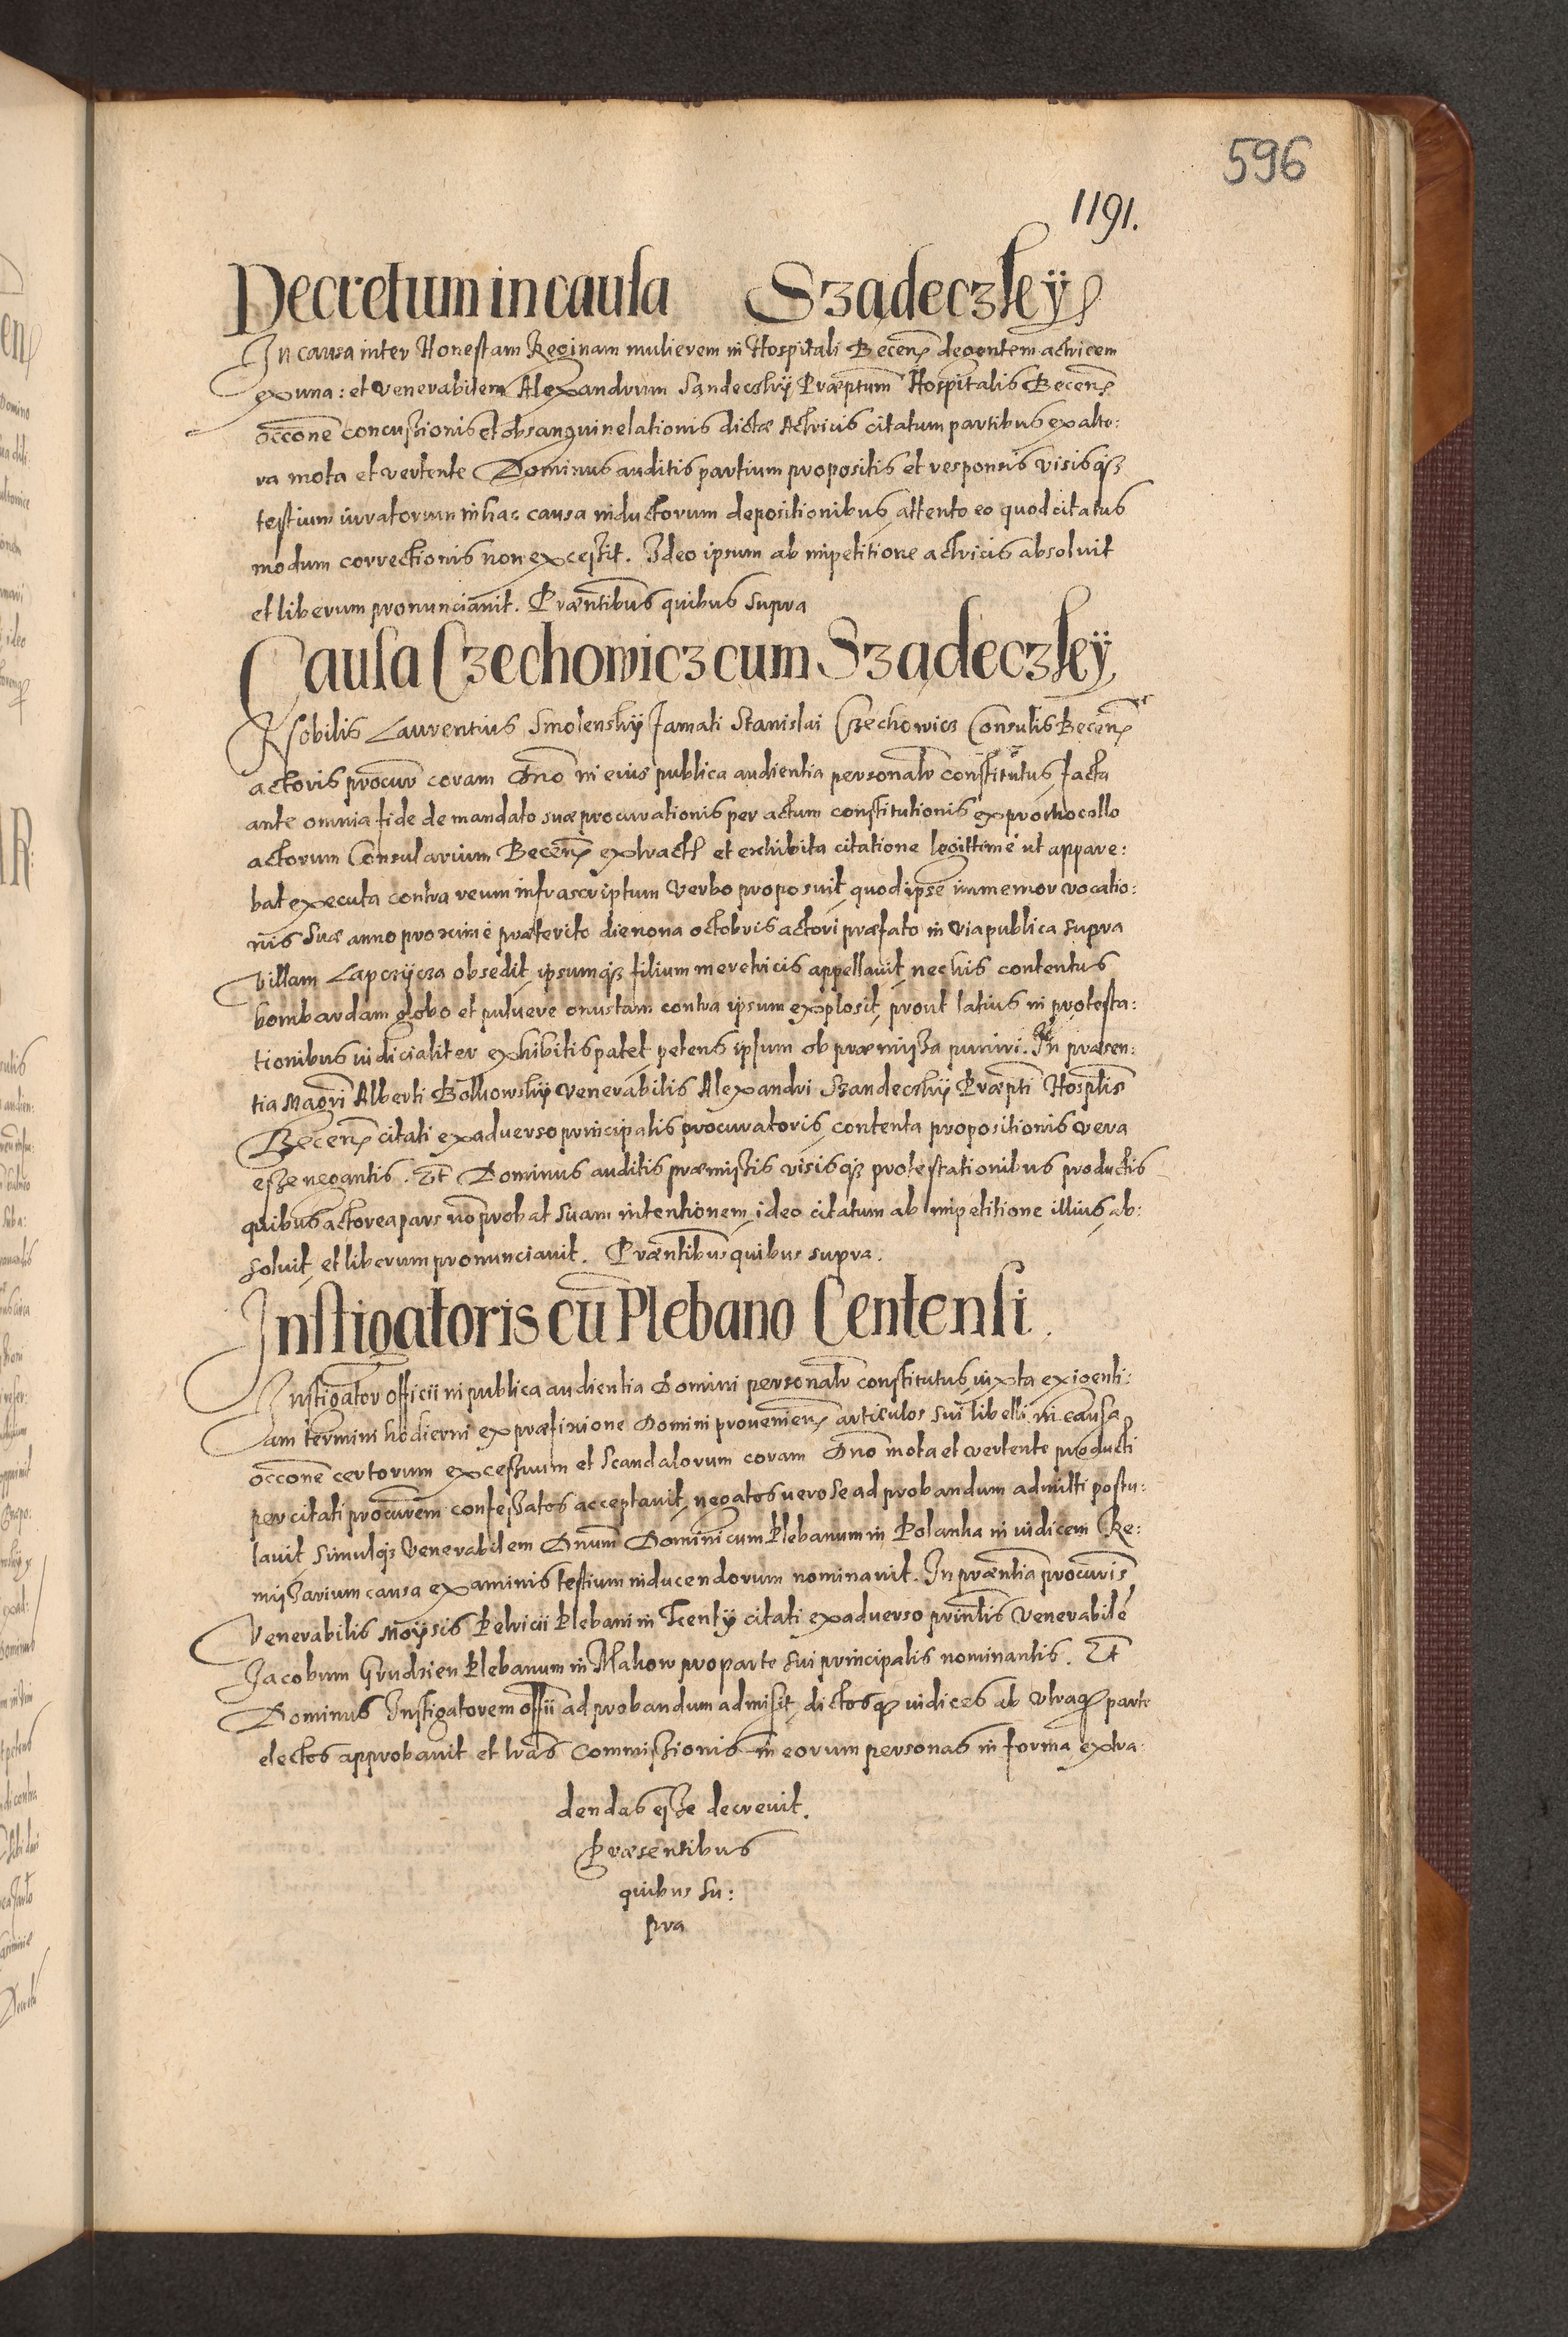 596
1191.
Decretum in causa Szadeczkÿ
In causa inter Honestam Reginam mulierem in Hospitali Becens degentem actricem
ex una: et Venerabilem Alexandrum Sandeczkÿ Præptum Hospitalis Becens
occone concussionis et obsanguinelationis dictæ Actricis citatum partibus ex alte:
ra mota et vertente Dominus auditis partium propositis et responsis visisqz
testium iuratorum in hac causa inductorum depositionibus, attento eo quod citatus
modum correctionis non excessit. Ideo ipsum ab impetitione actricis absoluit
et liberum pronunciauit. Præntibus quibus supra
Causa Czechowicz cum Szadeczkÿ
Nobilis Laurentius Smolenskÿ famati Stanislai Czechowicz Consulis Becens
actoris procur coram Dno in eius publica audientia personalr constitutus, facta
ante omnia fide de mandato suæ procurationis per actum constitutionis ex prothocollo
actorum Consularium Becens extract et exhibita citatione legittimè ut appare:
bat executa contra reum infrascriptum Verbo proposuit, quod ipse immemor vocatio:
nis Suæ anno proximè præterito die nona octobris actori præfato in via publica supra
Villam Lapczÿcza obsedit, ipsumqz filium meretricis appellauit, nec his contentus
bombardam globo et puluere onustam contra ipsum explosit, prout latius in protesta:
tionibus iudicialiter exhibitis patet, petens ipsum ob præmissa puniri. In præsen:
tia Magri Alberti Bolkowskÿ Venerabilis Alexandri Szandeczkÿ Præpti Hosplis
Becens citati ex aduerso principalis procuratoris, contenta propositionis vera
esse negantis. Et Dominus auditis præmissis visisqz protestationibus productis
quibus actorea pars no probat suam intentionem, ideo citatum ab impetitione illius ab:
soluit, et liberum pronunciauit. Præntibus quibus supra.
Instigatoris cu Plebano Centensi.
Instigator officii in publica audientia Domini personalr constitutus, iuxta exigenti:
am termini hodierni ex præfixione Domini proueniens articulos sui libelli in causa
occone certorum excessuum et Scandalorum coram Dno mota et vertente producti
per citati procurem confessatos acceptauit, negatos uero se ad probandum admitti postu:
lauit, simulqz Venerabilem Dnum Dominicum Plebanum in Polanka in iudicem Re:
missarium causa examinis testium inducendorum nominauit. In præntia procuris
Venerabilis Moÿsis Petricii Plebani in Kentÿ citati ex aduerso prinlis Venerabile
Jacobum Grudzien Plebanum in Makow pro parte sui principalis nominantis. Et
Dominus Instigatorem offii ad probandum admisit, dictosq iudices ab Utraq parte
electos approbauit et lras Commissionis in eorum personas in forma extra:
dendas esse decreuit.
Præsentibus
quibus su:
pra